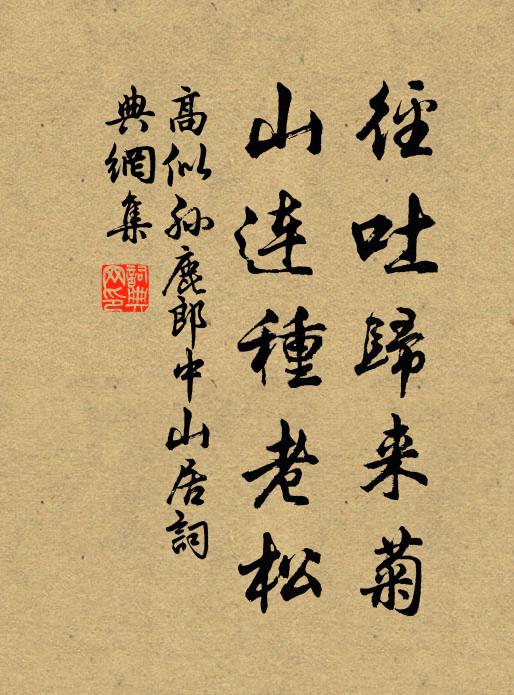 徑吐歸来菊
山連種老松
高似孫鹿郎中山居詞
典網集
詞典網印